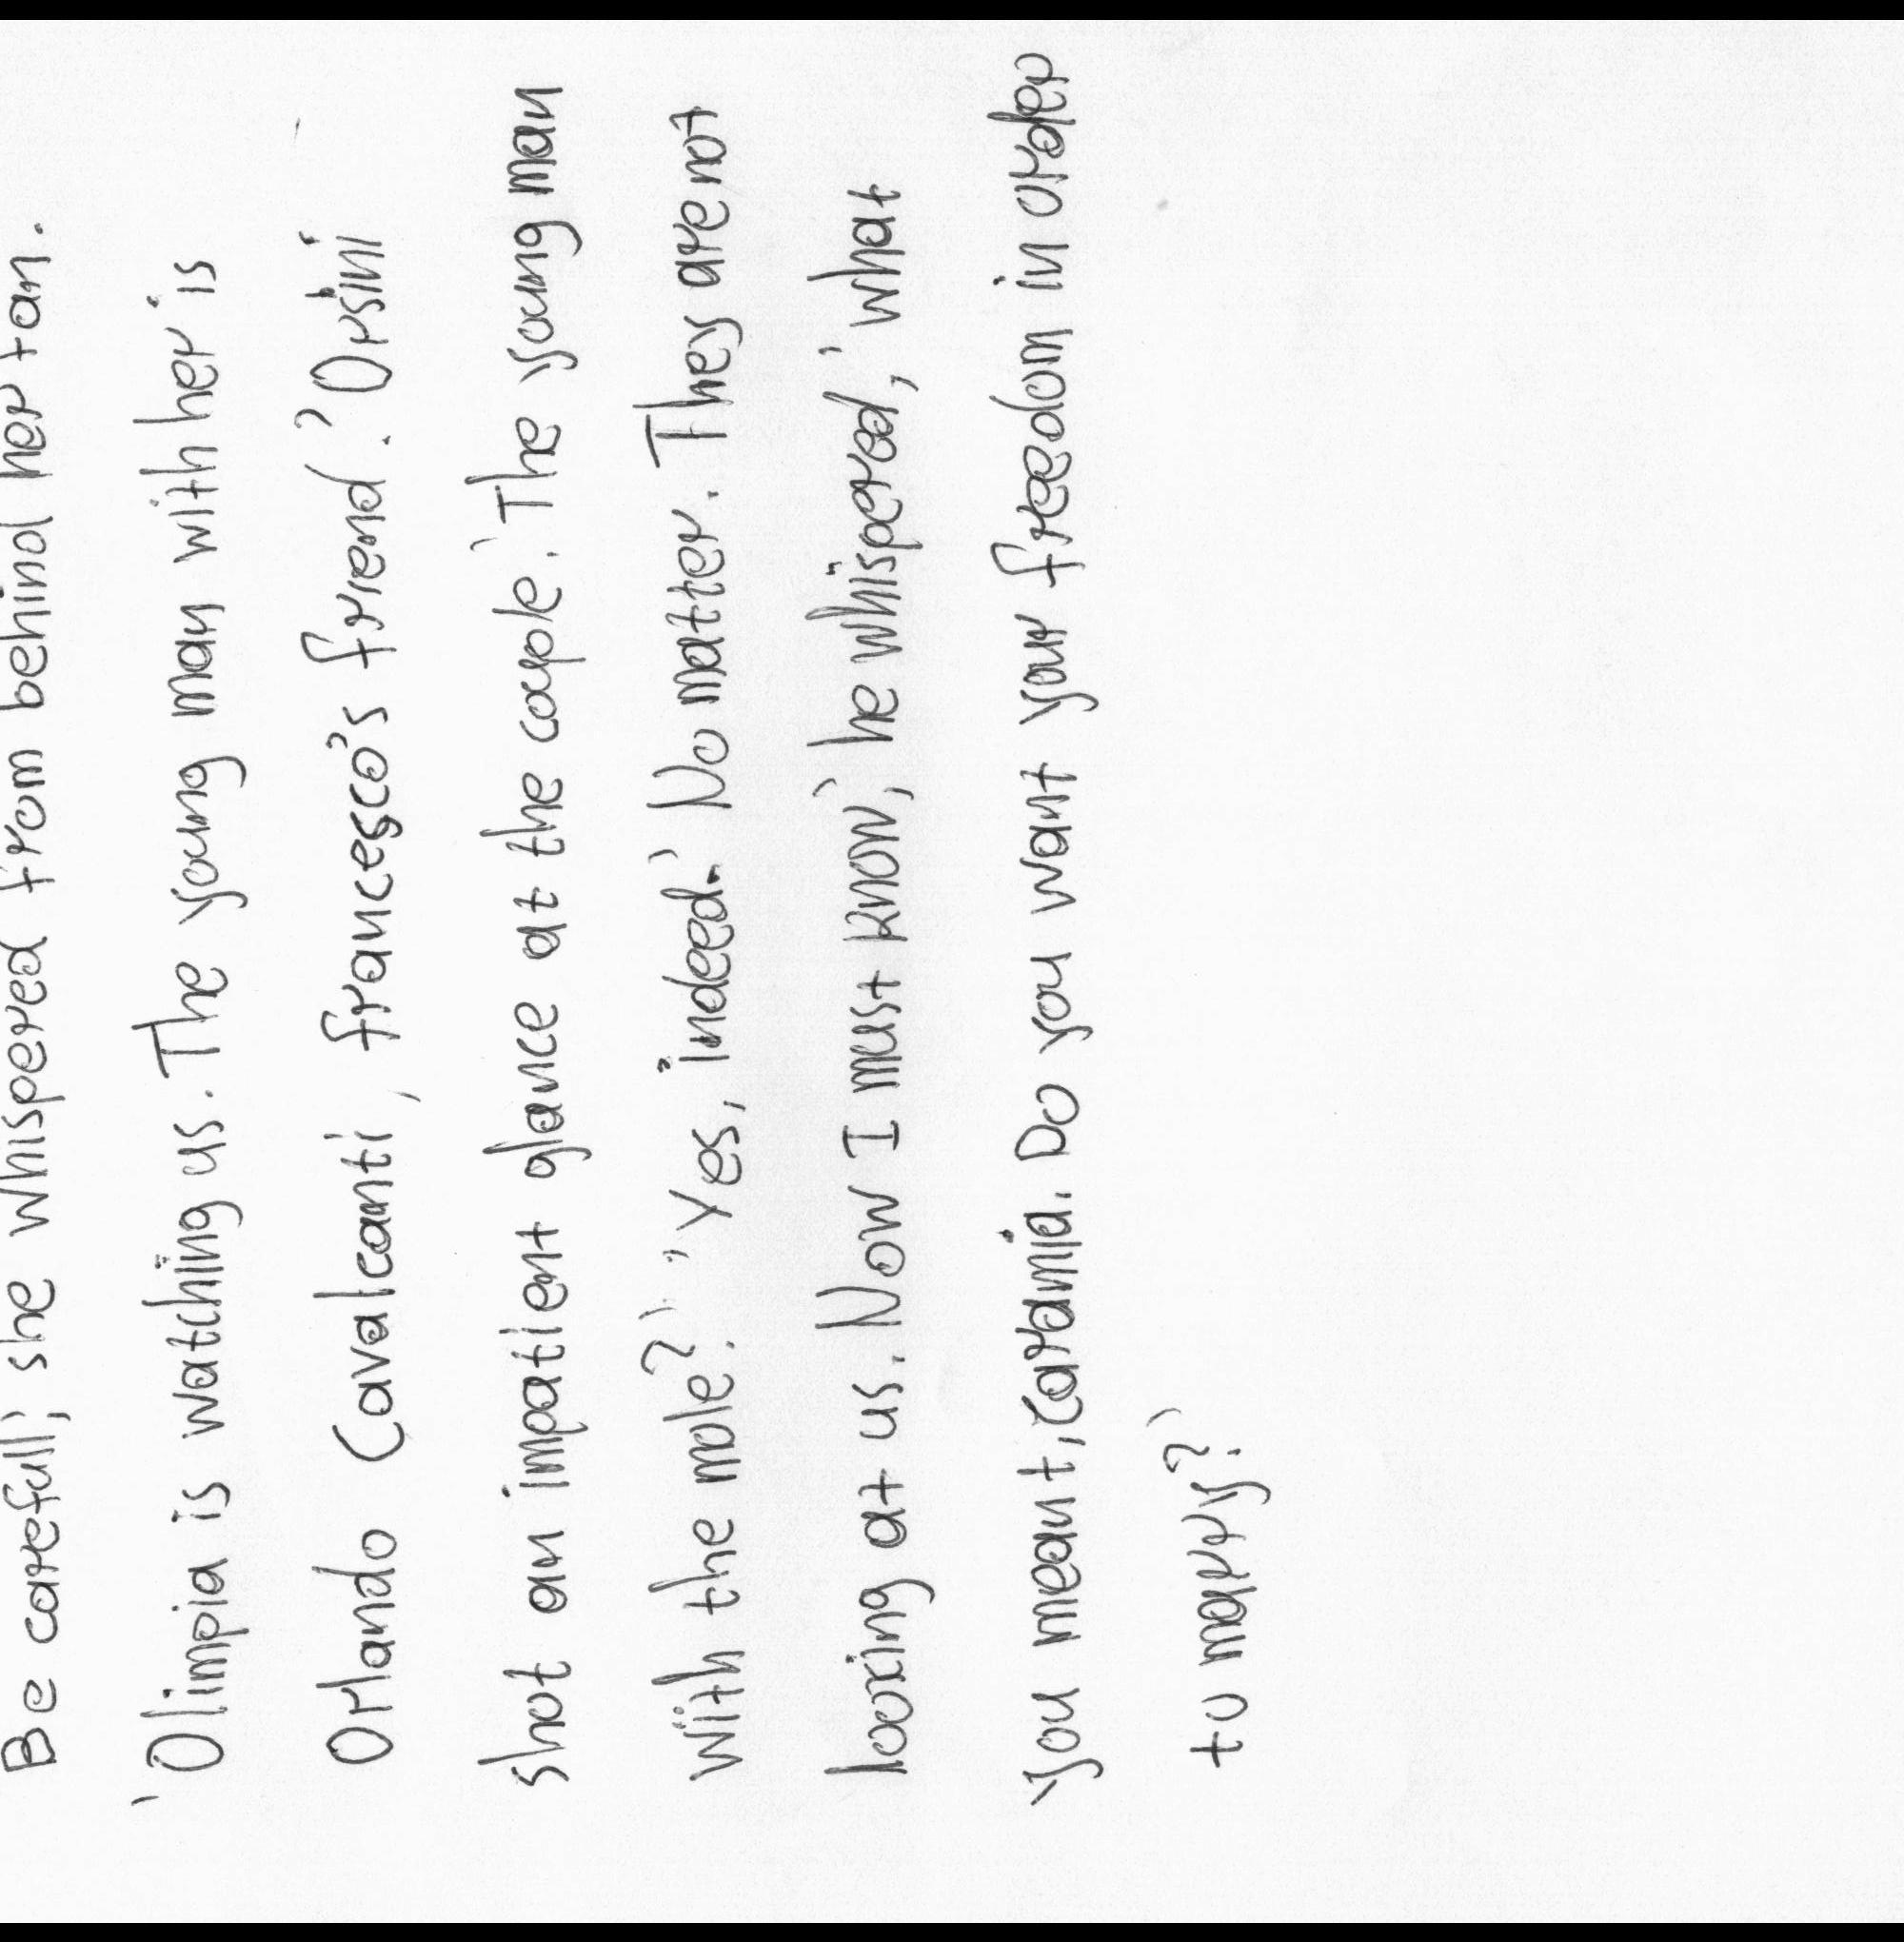 Be careful; she whispered from behind her fan.
'Olimpia is watching us. The young man with her is
Orlando Cavalcanti, Francesco's friend.' Orsini
shot an impatient glance at the couple. 'The young man
with the mole?' 'Yes, indeed.' 'No matter. They are not
looking at us. Now I must know,' he whispered, 'what
you meant, Carania. Do you want your freedom in order
to marry?'